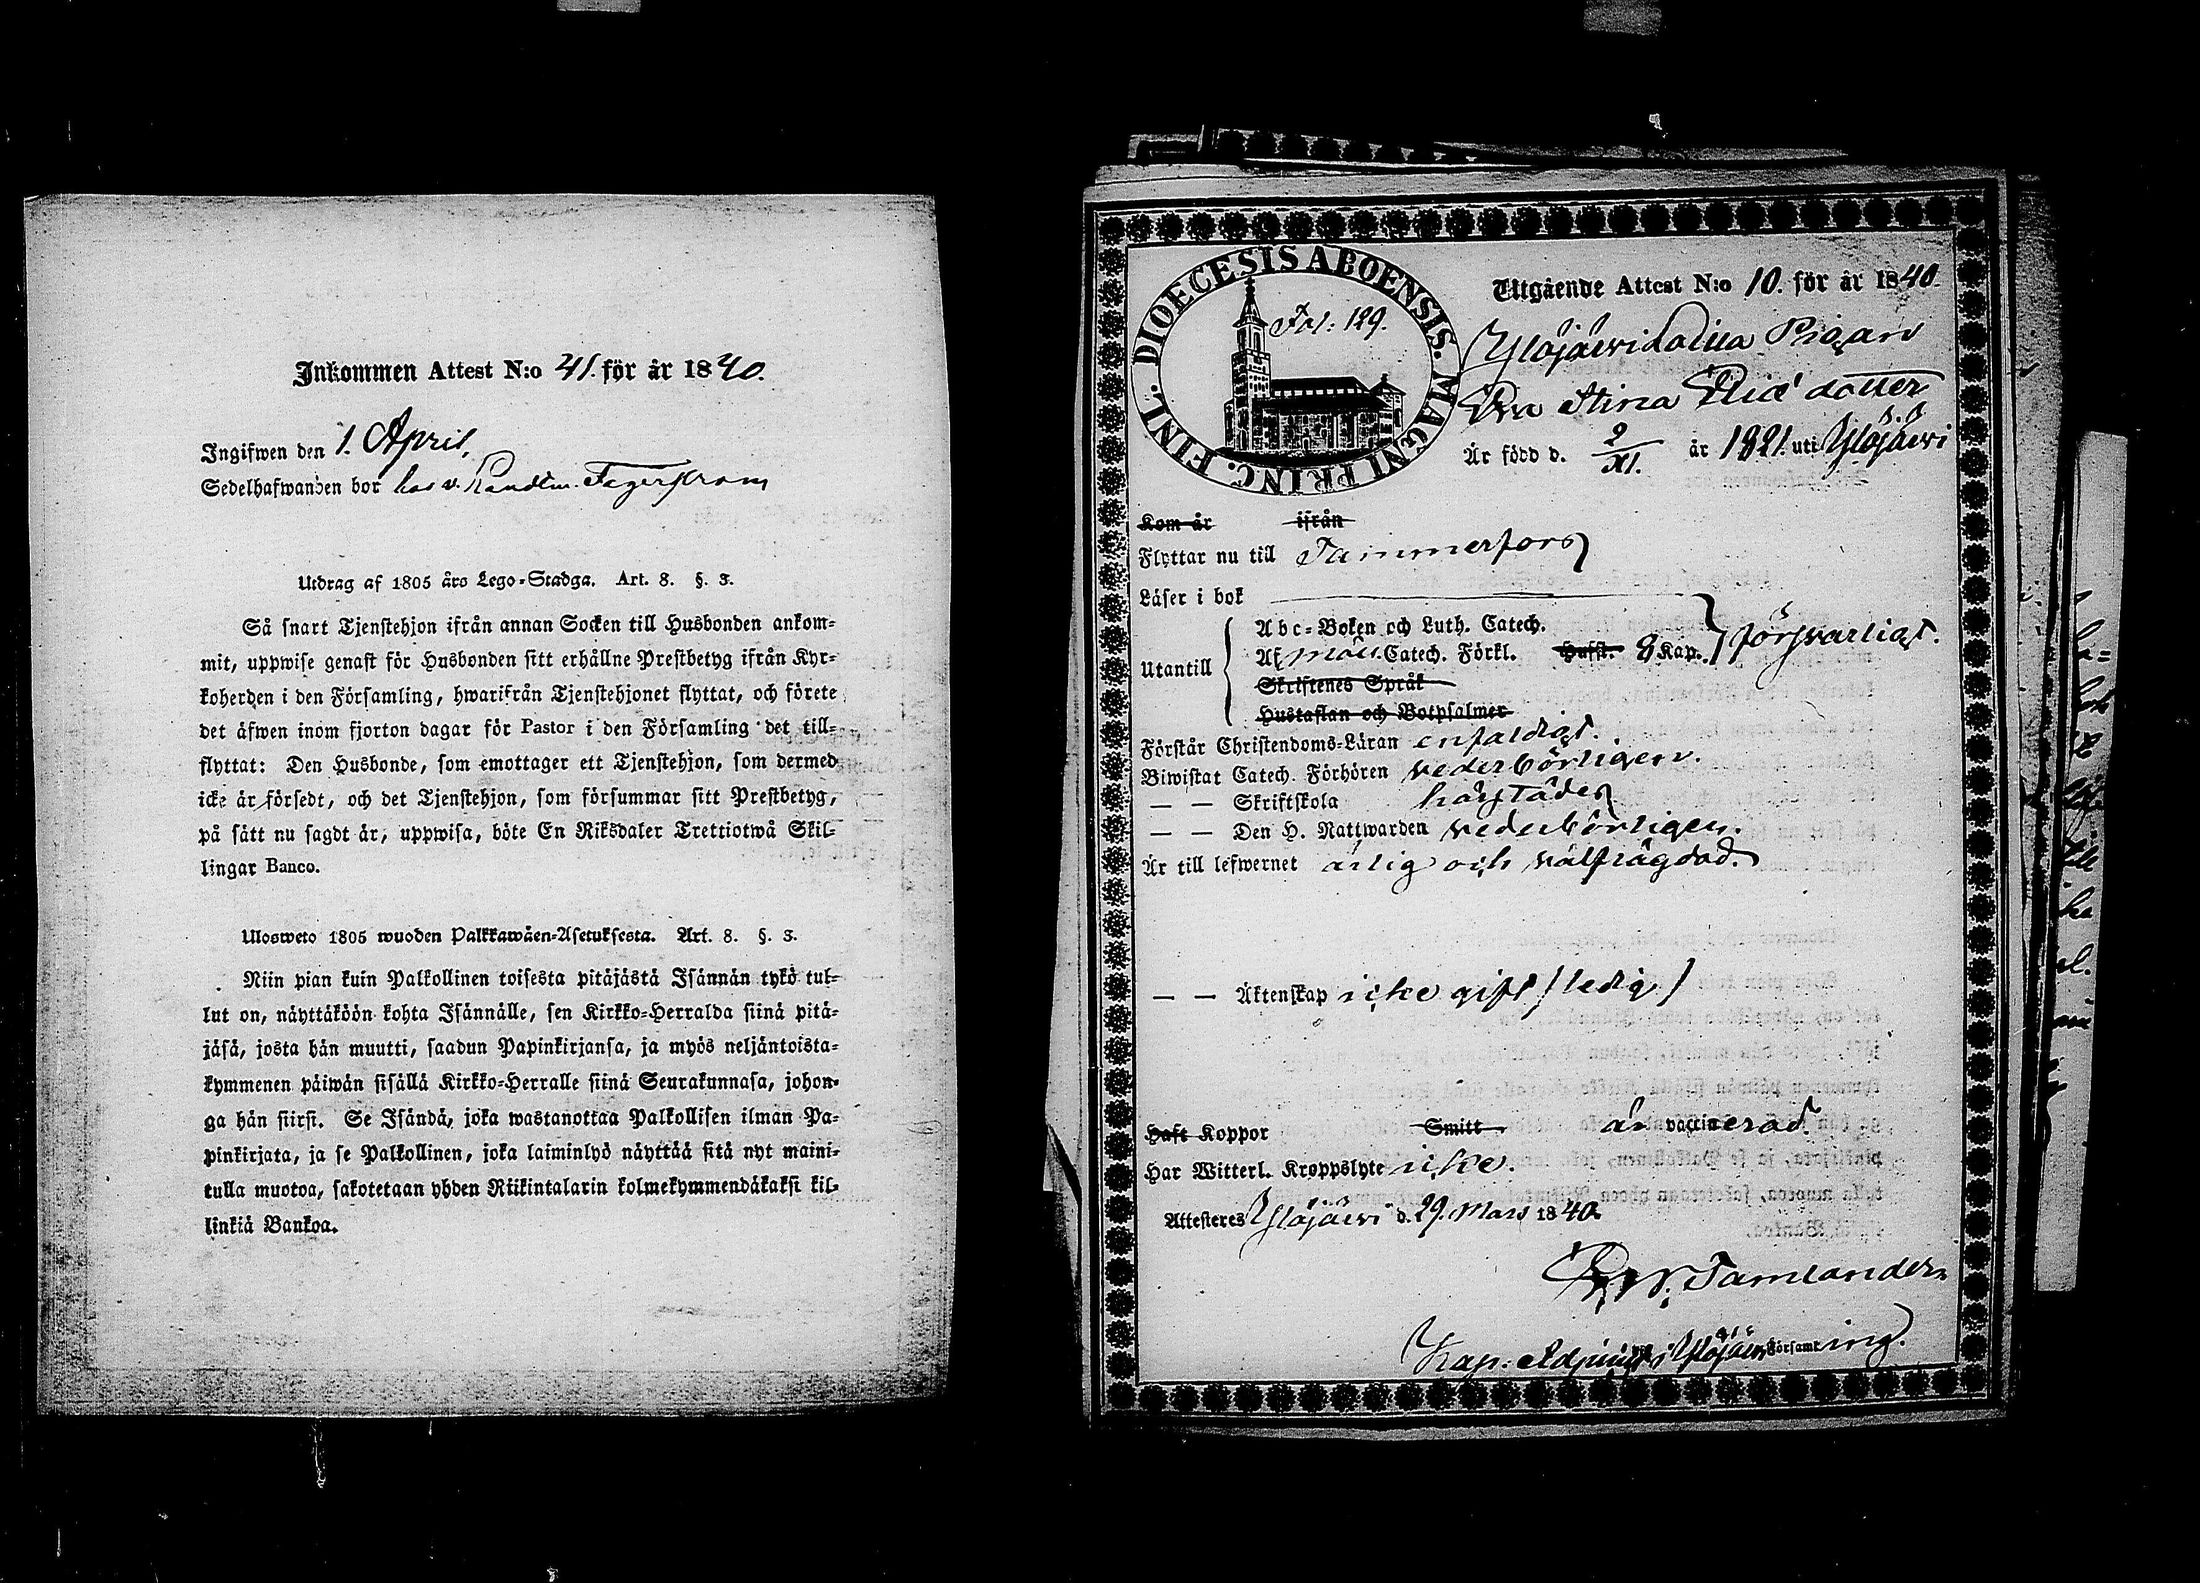 Inkommen Attest N:o 41. för år 1840.
Ingifwen den 1. April,
Sedelhafwanden bor hos v. Handlm. Fagerström
Utdrag af 1805 års Lego-Stadga. Art. 8. §. 3.
Så snart Tjenstehjon ifrån annan Socken till Husbonden ankom-
mit, uppwise genast för Husbonden sitt erhållne Prestbetyg ifrån Kyr-
koherden i den Församling, hwarifrån Tjenstehjonet flyttat, och förete
det äfwen inom fjorton dagar för Pastor i den Församling det till-
flyttat: Den Husbonde, som emottager ett Tjenstehjon, som dermed
icke är försedt, och det Tjenstehjon, som försummar sitt Prestbetyg,
på sätt nu sagdt är, uppwisa, böte En Riksdaler Trettiotwå Skil-
lingar Banco.
Ulosweto 1805 wuoden Palkkawäen-Asetuksesta. Art. 8. §. 3.
Niin pian kuin Palkollinen toisesta pitäjästä Isännän tykö tul-
lut on, näyttäköön kohta Isännälle, sen Kirkko-Herralda siinä pitä-
jäsä, josta hän muutti, saadun Papinkirjansa, ja myös neljäntoista-
kymmenen päiwän sisällä Kirkko-Herralle siinä Seurakunnasa, johon-
ga hän siirsi. Se Isändä, joka wastanottaa Palkollisen ilman Pa-
pinkirjata, ja se Palkollinen, joka laiminlyö näyttää sitä nyt maini-
tulla muotoa, sakotetaan yhden Riikintalarin kolmekymmendäkaksi kil-
linkiä Bankoa.
DIOECESIS ABOENSIS. MAGNI PRINC. FINL.
Fol: 129.
Utgående Attest N:o 10. för år 1840.
Pigan
Stina dotter
Är född d. 2/XI. år 1821. uti Ylöjärwi
Kom år ifrån
Flyttar nu till Tammerfors
Läser i bok
Utantill
Abc-Boken och Luth. Catech.
Af Möll. Catech. Förkl. Hufst. 8 Kap. försvarligt.
Skriftenes Språk
Hustaflan och Botpsalmer
Förstår Christendoms-Läran enfaldigt.
Biwistat Catech. Förhören vederbörligen.
— — Skriftskola härstädes
— — Den H. Nattwarden vederbörligen.
Är till lefwernet ärlig och välfrägdad.
— — Äktenskap icke gift / ledig /
Haft Koppor Smitt är vaccinerad
Har Witterl. Kroppslyte icke.
Attesteres Ylöjärwi d. 29. Mars 1840.
Tamlander
Kap: Adjunkt i Ylöjärwi församling.